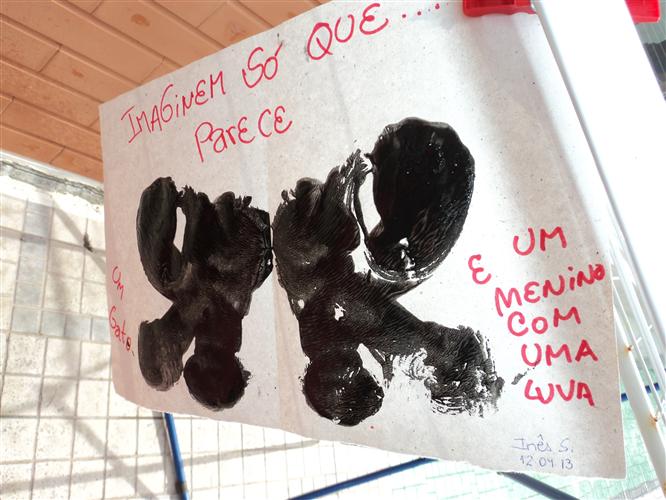 IMAGINEM SÓ QUE...
PARECE
UM
Gato.
E UM
MENINO
COM
UMA
LUVA
Inês S.
12 04 13